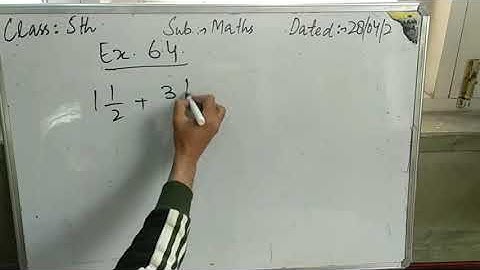 Class:- 5th Sub:- Maths Dated:- 28/04/2
Ex. 64.
1 1/2 + 3 1